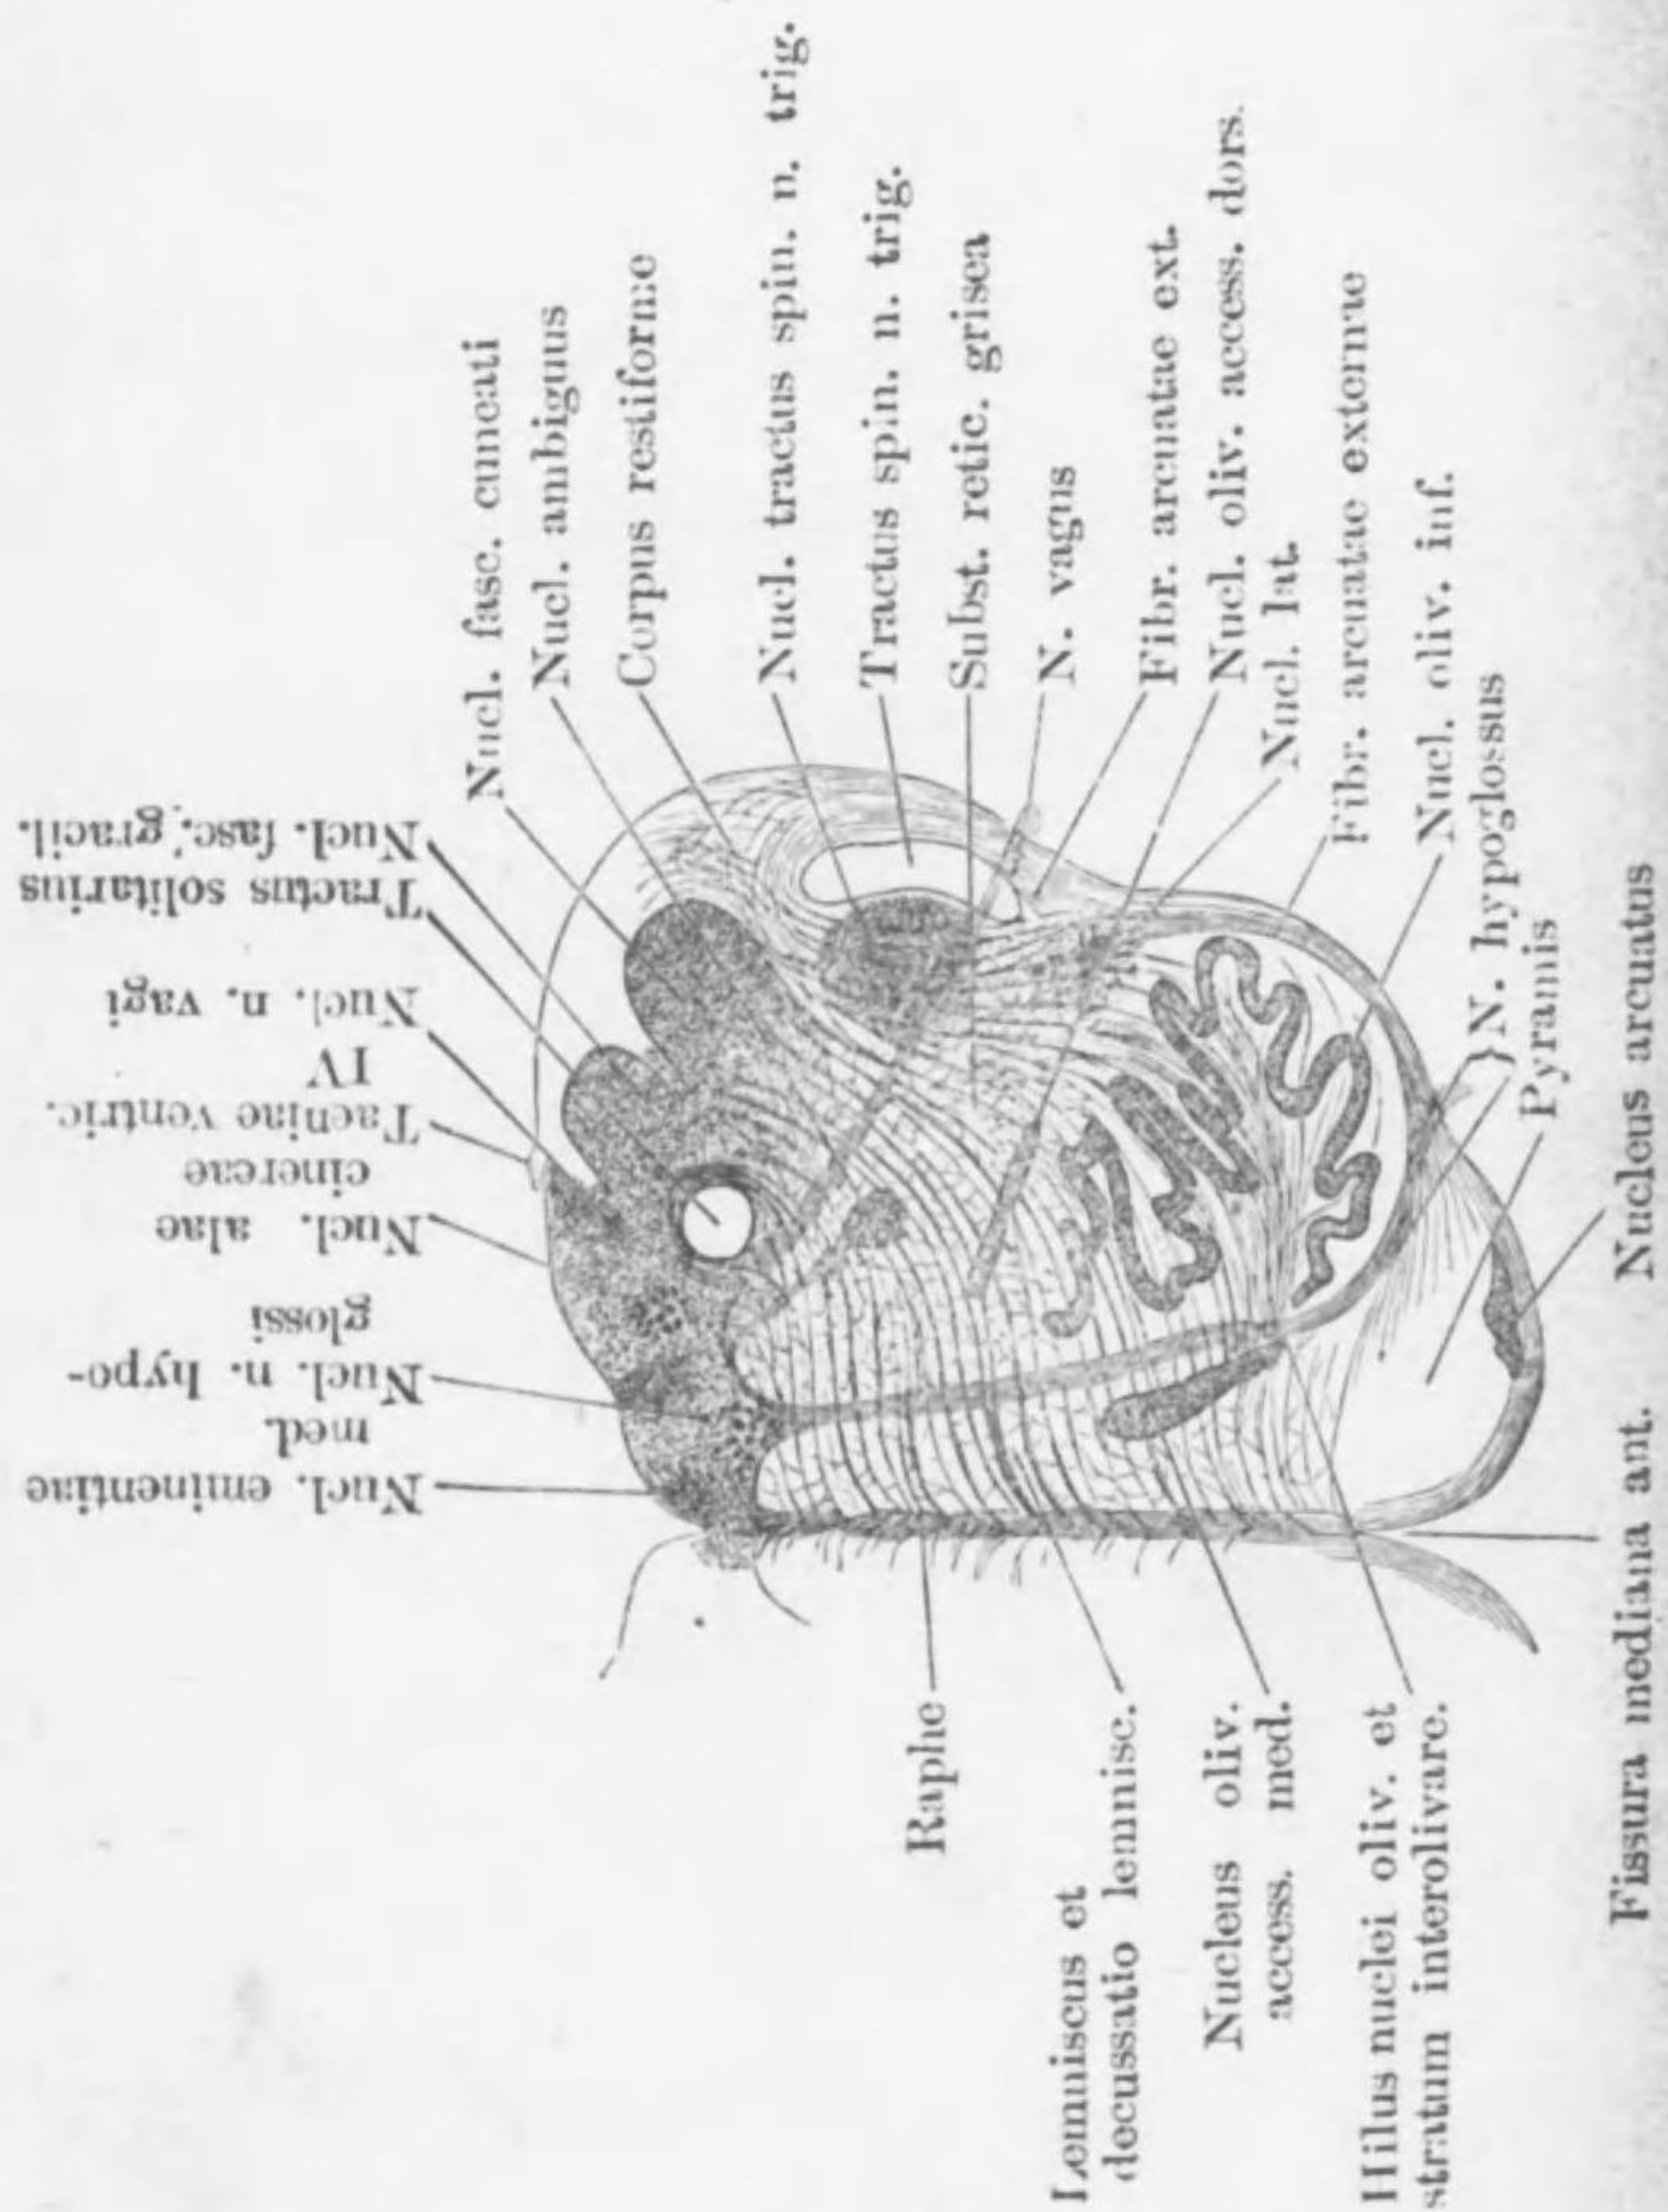 Nucl. eminentiae
med.
Nucl. n. hypo-
glossi
Nucl. alae
cinereae
Taeniae ventric.
IV
Nucl. n. vagi
Tractus solitarius
Nucl. fasc. gracil.
Nucl. fasc. cuneati
Nucl. ambiguus
Corpus restiforme
Nucl. tractus spin. n. trig.
Tractus spin. n. trig.
Subst. retic. grisea
N. vagus
Fibr. arcuatae ext.
Nucl. oliv. access. dors.
Nucl. lat.
Fibr. arcuatae externae
Nucl. oliv. inf.
}N. hypoglossus
Pyramis
Raphe
Lemniscus et
decussatio lemnisc.
Nucleus oliv.
access. med.
Hilus nuclei oliv. et
stratum interolivare.
Fissura mediana ant. Nucleus arcuatus